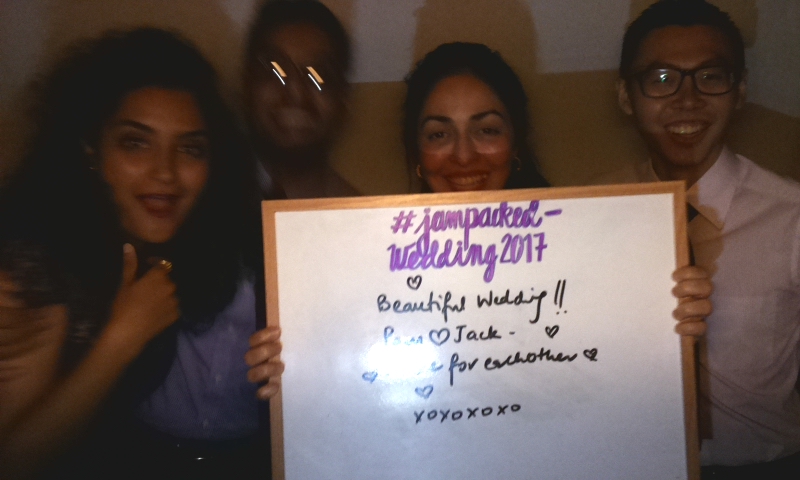 #jampacked-
Wedding2017
Beautiful Wedding!!
♡ Jack -
for eachother
xoxoxoxo